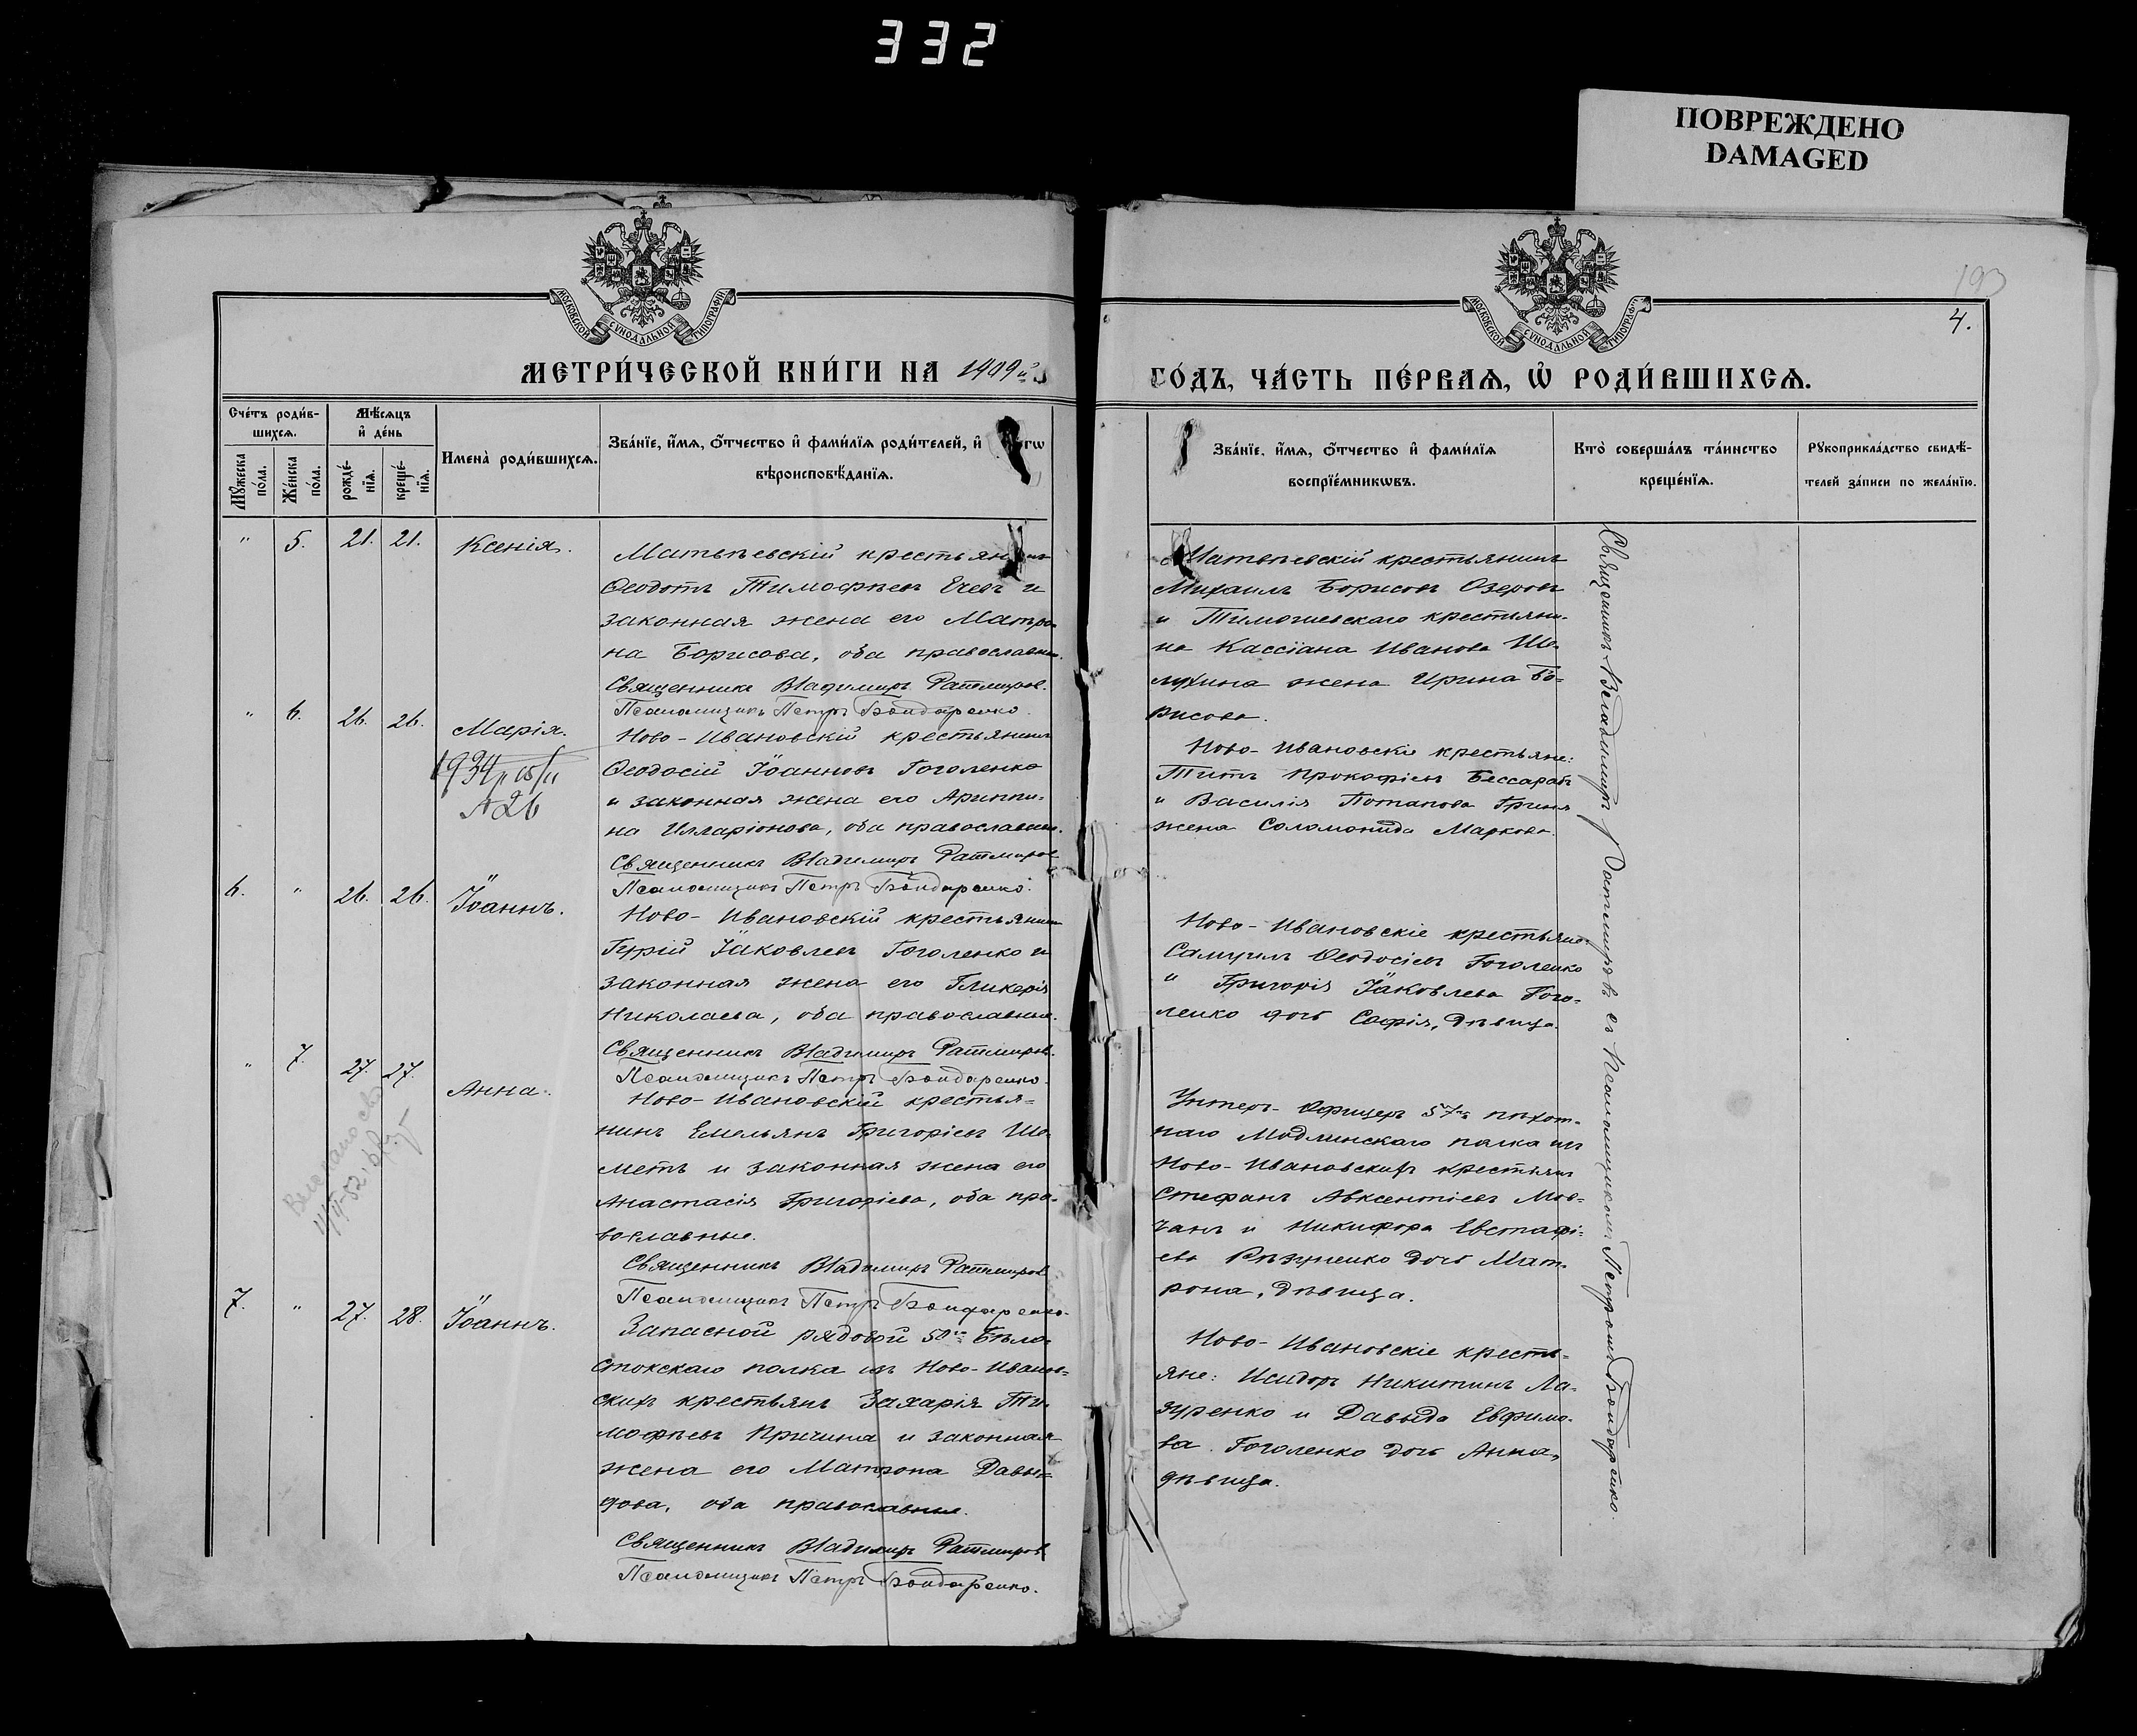 332
ПОВРЕЖДЕНО
DAMAGED
193
4.
МОСКОВСКОЙ СѴНОДАЛЬНОЙ ТИПОГРАФІИ
МОСКОВСКОЙ СѴНОДАЛЬНОЙ ТИПОГРАФІИ
МЕТРИ́ЧЕСКОЙ КНИ́ГИ НА 1909 й
ГО́ДЪ, ЧА́СТЬ ПЕ́РВАЯ, Ѡ҆ РОДИ́ВШИХСЯ.
Сче́тъ роди́в-
шихся.
Мѣ́сяцъ
и҆ де́нь
Мꙋ́жеска
по́ла.
Же́нска
по́ла.
рожде́-
нїя.
креще́-
нїя.
Имена̀ роди́вшихся.
Зва́нїе, и҆́мя, ѻ҆́тчество и҆ фами́лїя роди́телей, и҆
вѣроисповѣ́данїя.
Зва́нїе, и҆́мя, ѻ҆́тчество и҆ фами́лїя
воспрїе́мникѡвъ.
Кто̀ соверша́лъ та́инство
креще́нїя.
Рꙋкоприкла́дство свидѣ́-
телей за́писи по жела́нїю.
" 5. 21. 21. Ксенія.
Матвѣевскій крестьянинъ
Ѳеодотъ Тимофѣевъ и
законная жена его Матро-
на Борисова, оба православные.
Священникъ Владимиръ Ратмировъ.
Псаломщикъ Петръ Бондаренко.
Матвѣевскій крестьянинъ
Михаилъ Борисовъ Озеровъ
и крестьяни-
на Кассіана Иванова Ше-
лухина жена Ирина Бо-
рисова.
" 6. 26. 26. Марія.
1934
№ 26
Ново-Ивановскій крестьянинъ
Ѳеодосій Іоанновъ Гоголенко
и законная жена его Агриппи-
на Илларіонова, оба православные.
Священникъ Владимиръ Ратмировъ
Псаломщикъ Петръ Бондаренко.
Ново-Ивановскіе крестьяне:
Титъ Прокофіевъ Бессарабъ
и Василія Потапова Гриня
жена Соломонида Маркова.
6. " 26. 26. Іоаннъ.
Ново-Ивановскій крестьянинъ
Гурій Іаковлевъ Гоголенко и
законная жена его Гликерія
Николаева, оба православные.
Священникъ Владимиръ Ратмировъ.
Псаломщикъ Петръ Бондаренко.
Ново-Ивановскіе крестьяне:
Самуилъ Ѳеодосіевъ Гоголенко
и Григорія Іаковлева Гого-
ленко дочь Софія, дѣвица.
" 7. 27. 27. Анна.
Ново-Ивановскій крестья-
нинъ Емельянъ Григорьевъ Ше-
метъ и законная жена его
Анастасія Григорьева, оба пра-
вославные.
Священникъ Владимиръ Ратмировъ
Псаломщикъ Петръ Бондаренко.
Унтеръ-Офицеръ 57го пѣхот-
наго Модлинскаго полка изъ
Ново-Ивановскихъ крестьянъ
Стефанъ Авксентіевъ Мов-
чанъ и Никифора Евстафі-
ева дочь Мат-
рона, дѣвица.
7. " 27. 28. Іоаннъ.
Запасной рядовой 50го Бѣло-
стокскаго полка изъ Ново-Иванов-
скихъ крестьянъ Захарія Ти-
мофѣевъ Причина и законная
жена его Матрона Давы-
дова, оба православные.
Священникъ Владимиръ Ратмировъ
Псаломщикъ Петръ Бондаренко.
Ново-Ивановскіе кресть-
яне: Исидоръ Никитинъ Ла-
зуренко и Давыда Евфимо-
ва Гоголенко дочь Анна,
дѣвица.
Священникъ Владимиръ Ратмировъ съ Псаломщикомъ Петромъ Бондаренко.